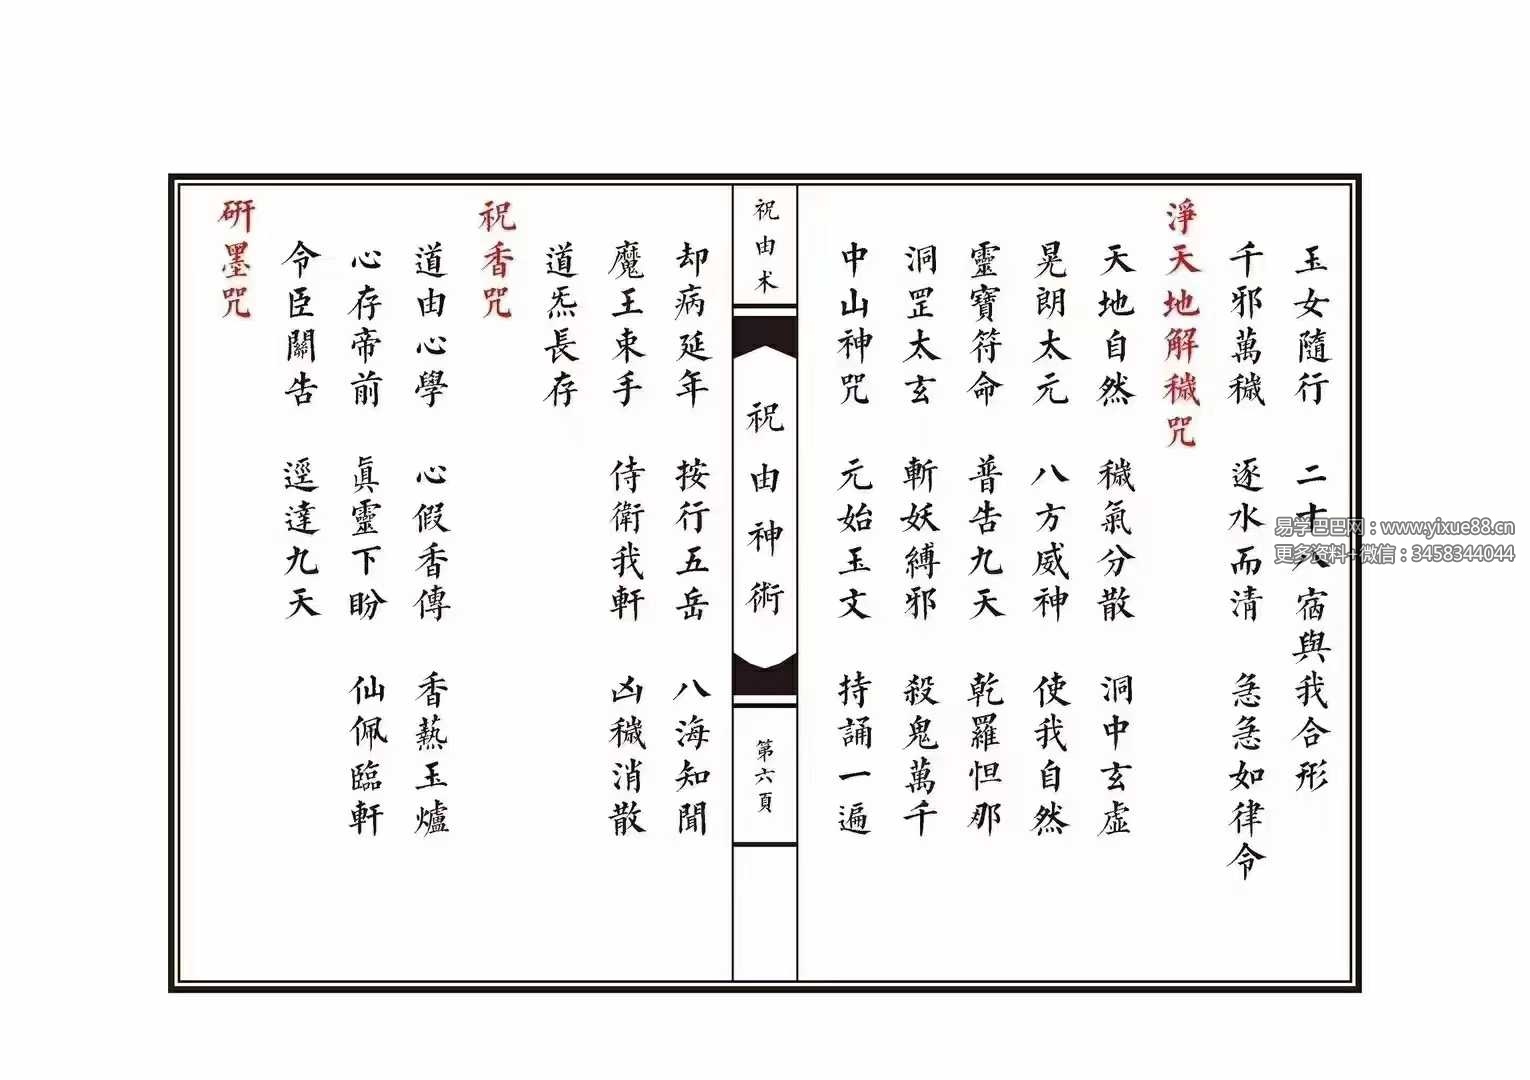 玉女隨行 二十八宿與我合形
千邪萬穢 逐水而清 急急如律令
淨天地解穢咒
天地自然 穢氣分散 洞中玄虛
晃朗太元 八方威神 使我自然
靈寶符命 普告九天 乾羅怛那
洞罡太玄 斬妖縛邪 殺鬼萬千
中山神咒 元始玉文 持誦一遍
祝由术
祝由神術
第六頁
却病延年 按行五岳 八海知聞
魔王束手 侍衛我軒 凶穢消散
道炁長存
祝香咒
道由心學 心假香傳 香爇玉爐
心存帝前 眞靈下盼 仙佩臨軒
令臣關告 逕達九天
研墨咒
易学巴巴网:www.yixue88.cn
更多资料+微信:3458344044